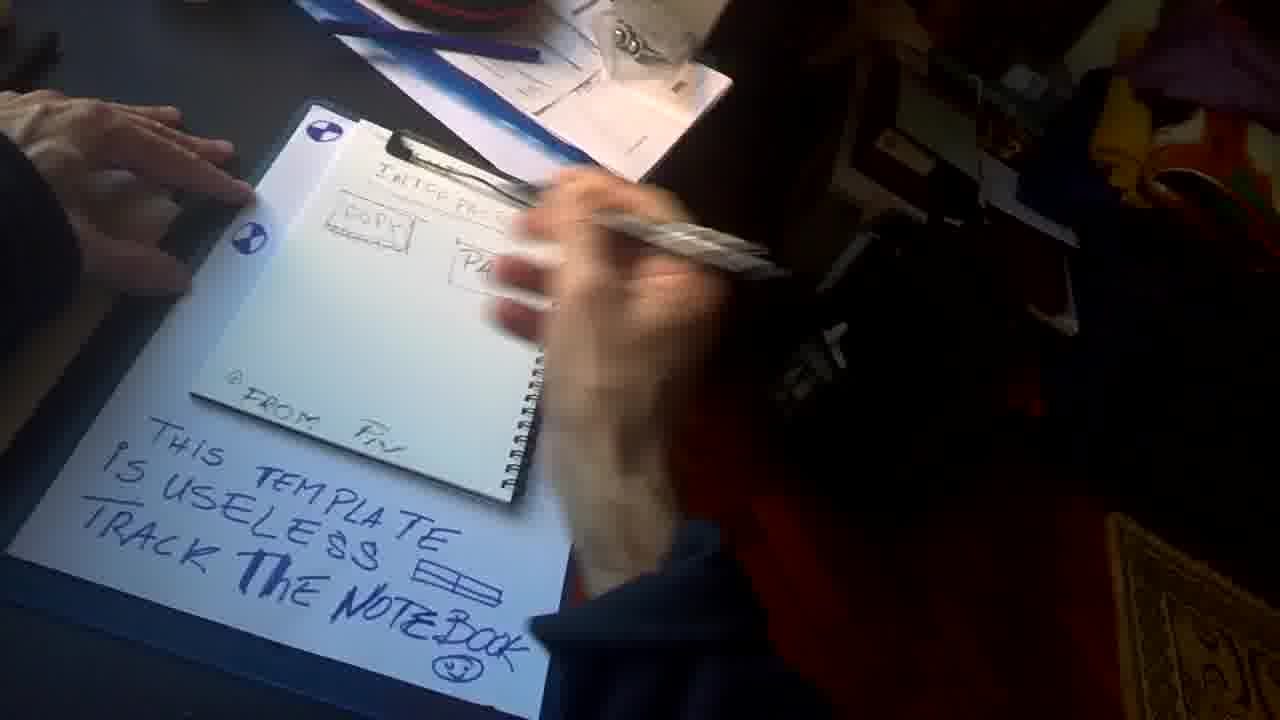 COPY
PA
FROM FIN
THIS TEMPLATE
iS USELESS
TRACK ThE NOTEBOOK